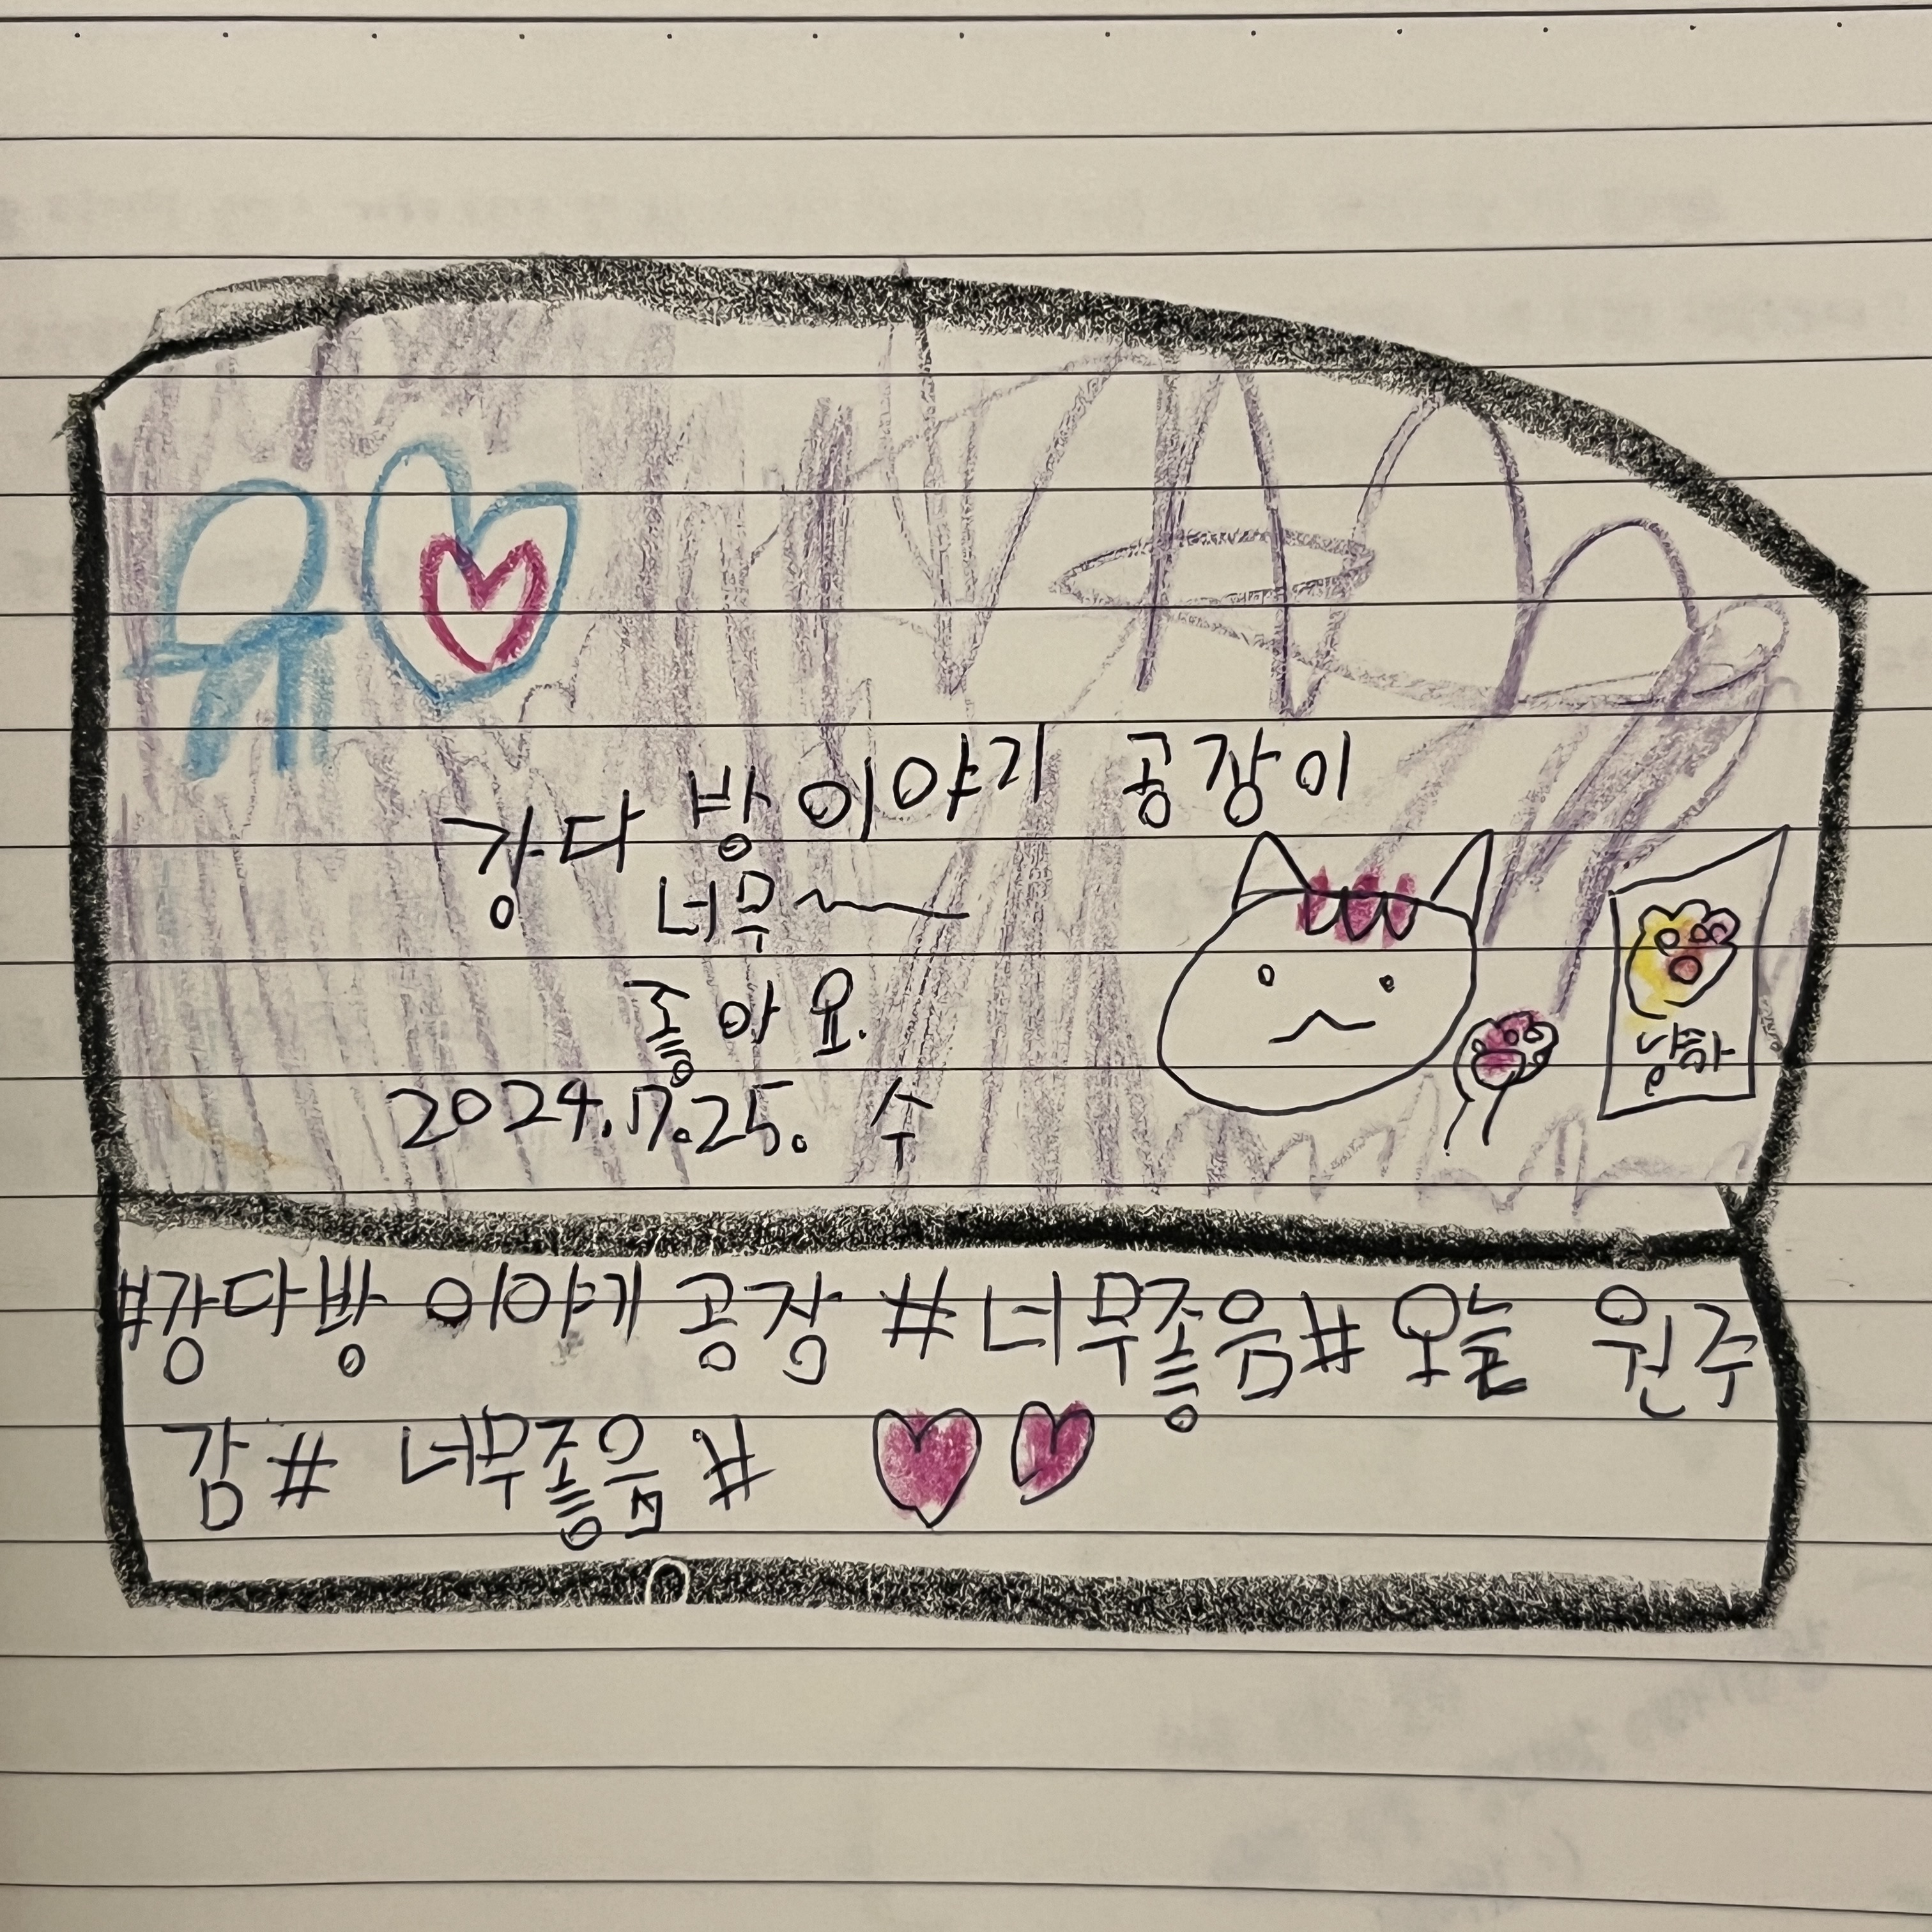 강다방 이야기 공장이
너무~
좋아요.
2024.7.25. 수
냥하
#강다방 이야게 공장 #너무좋음#오늘 원주
감# 너무좋음#